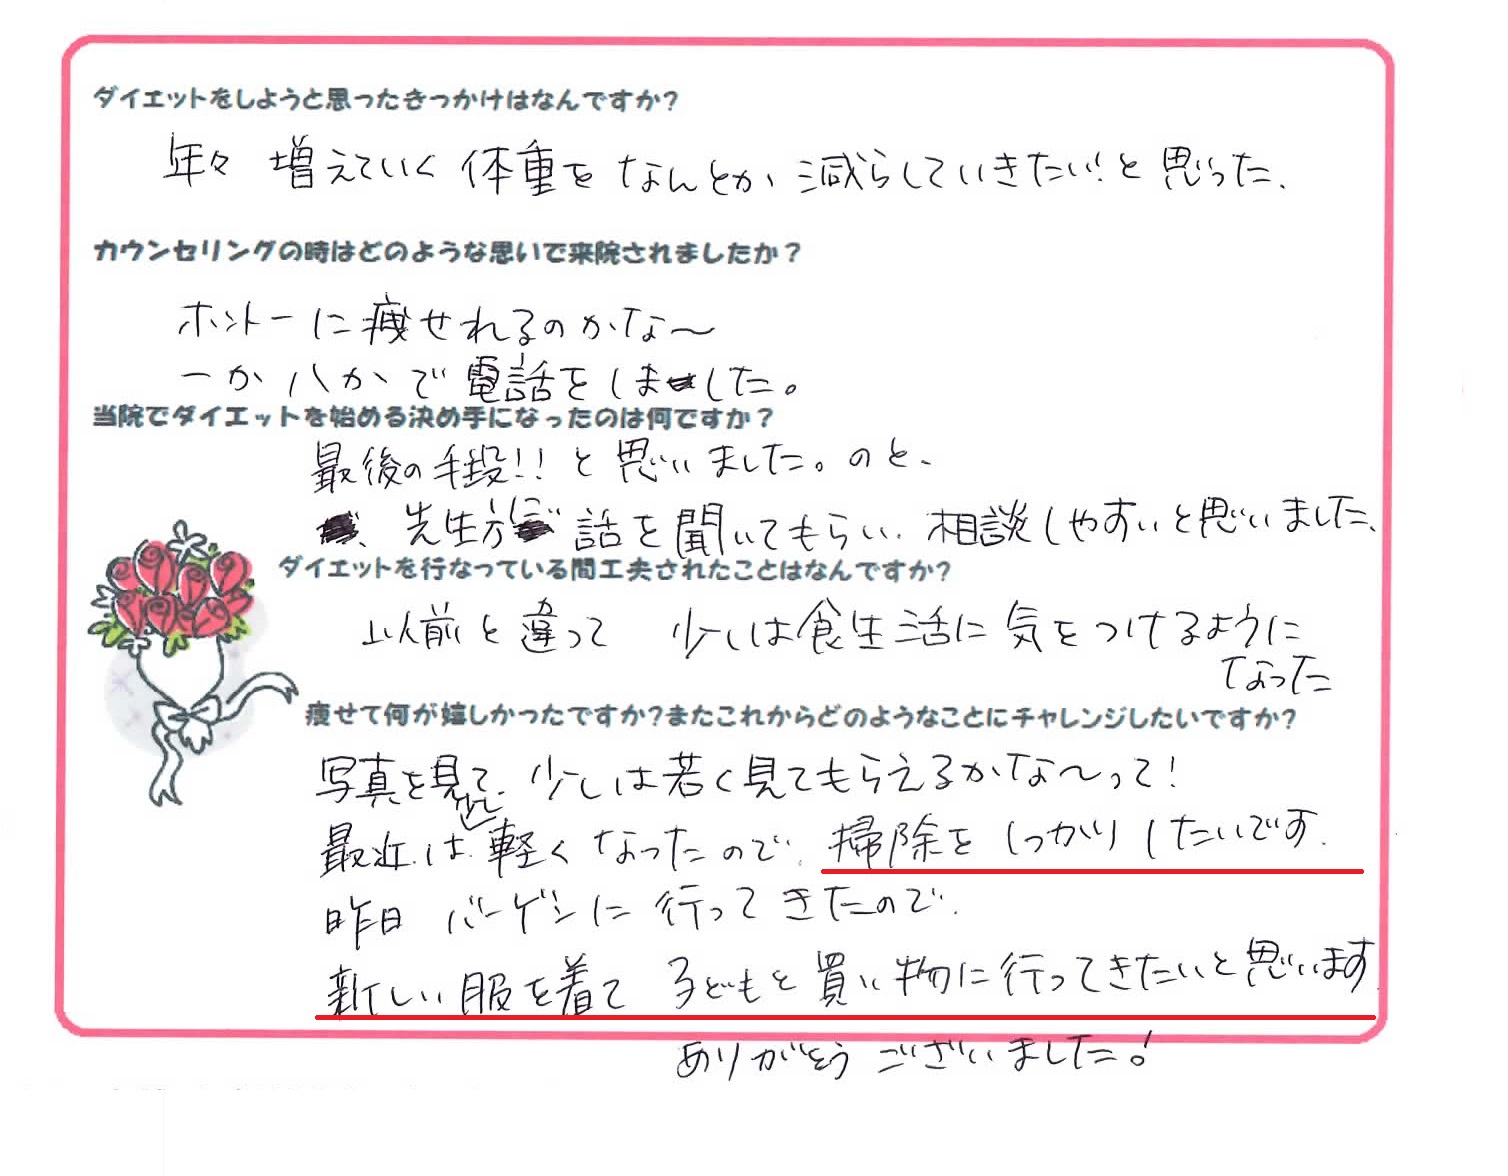 ダイエットをしようと思ったきっかけはなんですか?
年々 増えていく 体重を なんとか 減らしていきたい!と 思った、
カウンセリングの時はどのような思いで来院されましたか?
ホントーに痩せれるのかな〜
一か八かで 電話をしました。
当院でダイエットを始める決め手になったのは何ですか?
最後の手段!!と思いました。のと、
先生方に 話を聞いてもらい、相談しやすいと思いました、
ダイエットを行なっている間工夫されたことはなんですか?
以前と違って 少しは食生活に気をつけるように
なった
痩せて何が嬉しかったですか?またこれからどのようなことにチャレンジしたいですか?
写真を見て、少しは若く見てもらえるかな〜って!
最近は 軽くなったので、掃除をしっかりしたいです。
昨日 バーゲンに 行ってきたので、
新しい服を着て 子どもと買い物に行ってきたいと思います
ありがとう ございました!